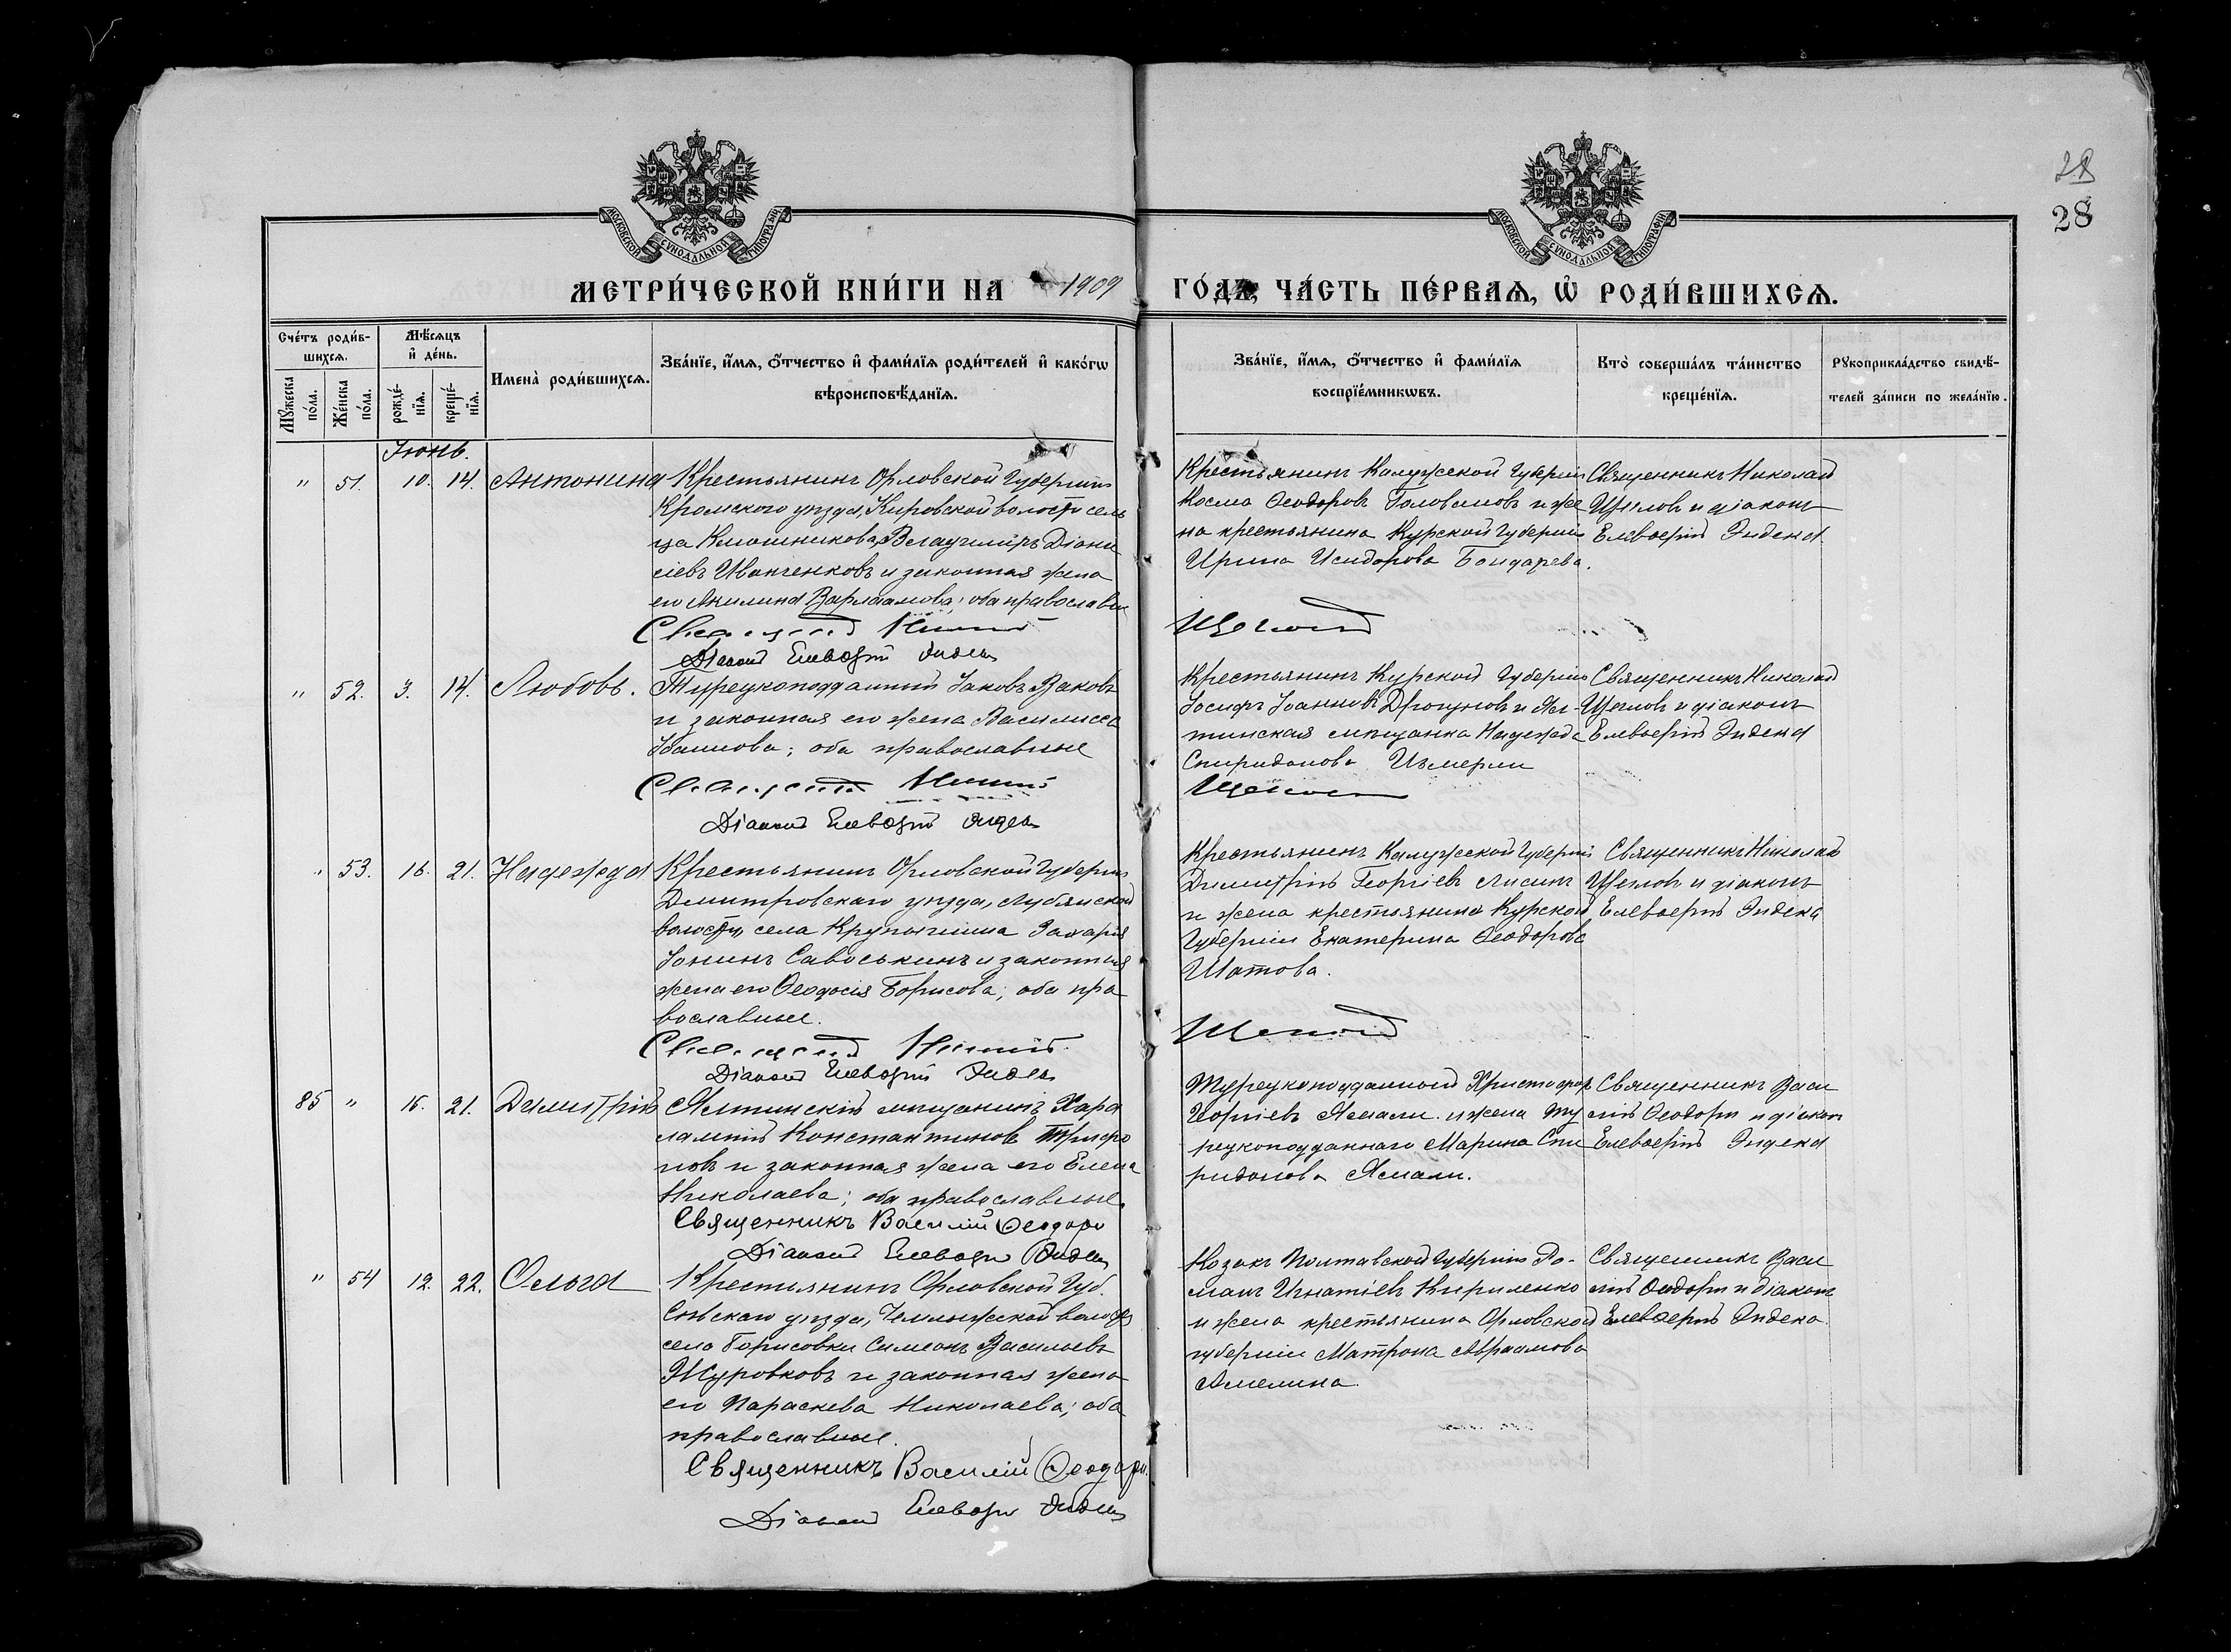 28
28
МОСКОВСКОЙ СѴНОДАЛЬНОЙ ТИПОГРАФІИ
МОСКОВСКОЙ СѴНОДАЛЬНОЙ ТИПОГРАФІИ
МЕТРИ́ЧЕСКОЙ КНИ́ГИ НА 1909 ГО́ДЪ, ЧА́СТЬ ПЕ́РВАѦ, Ѡ҆ РОДИ́ВШИХСѦ.
Сче́тъ роди́в-
шихсѧ.
Мѣ́сѧцъ
и҆ де́нь.
Мꙋ́жеска
по́ла.
Же́нска
по́ла.
рожде́-
нїѧ.
креще́-
нїѧ.
Имена̀ роди́вшихсѧ.
Зва́нїе, и҆́мѧ, ѻ҆́тчество и҆ фами́лїѧ роди́телей и҆ како́гѡ
вѣроисповѣ́данїѧ.
Зва́нїе, и҆́мѧ, ѻ҆́тчество и҆ фами́лїѧ
воспрїе́мникѡвъ.
Кто̀ соверша́лъ та́инство
креще́нїѧ.
Рꙋкоприкла́дство свидѣ́-
телей за́писи по жела́нїю.
Іюнь.
" 51. 10. 14. Антонина
Крестьянинъ Орловской Губерніи
Кромского уѣзда, Кировской волости сель
ца Владимiръ Діони
сіевъ Иванченковъ и законная жена
его Акилина Варлаамова; оба православн
Священник Николай
Діаконъ Елевферій Эндека
Крестьянинъ Калужской Губерніи
Косма Ѳеодоровъ Головановъ и же
на крестьянина Курской губерніи
Ирина Исидорова Бондарева.
Щегловъ
Священникъ Николай
Щегловъ и діаконъ
Елевферій Эндека
" 52. 3. 14. Любовь.
Турецкоподданный Іаковъ
и законная его жена Василисса
Іоаннова; оба православные
Священник Николай
Діаконъ Елевферій Эндека
Крестьянинъ Курской Губерніи
Іосифъ Іоанновъ и Ял-
тинская мѣщанка Надежда
Спиридонова Измерли
Щегловъ
Священникъ Николай
Щегловъ и діаконъ
Елевферій Эндека
" 53. 16. 21. Надежда
Крестьянинъ Орловской Губерніи
Дмитровскаго уѣзда, Лубянской
волости, села Крупышина Захарія
Іонинъ Савоськинъ и законная
жена его Ѳеодосія Борисова; оба пра
вославные.
Священник Николай
Діаконъ Елевферій Эндека
Крестьянинъ Калужской Губерніи
Димитрій Георгіевъ Лисинъ
и жена крестьянина Курской
Губерніи Екатерина Ѳеодорова
Шатова.
Щегловъ
Священникъ Николай
Щегловъ и діаконъ
Елевферій Эндека
85 " 15. 21. Димитрій
Ялтинскій мѣщанинъ Хара
лампій Константиновъ Трифо
новъ и законная жена его Елена
Николаева; оба православные.
Священникъ Василій Ѳеодори
Діаконъ Елевферій Эндека
Турецкоподданный Христофоръ
Георгіевъ Асмали и жена ту
рецкоподданнаго Марина Спи
ридонова Асмали.
Священникъ Васи
лій Ѳеодори и діаконъ
Елевферій Эндека
" 54 12. 22. Ольга
Крестьянинъ Орловской Губ.
Сѣвскаго уѣзда, волости
села Борисовки Симеонъ Васильевъ
Журовковъ и законная жена
его Параскева Николаева; оба
православные.
Священникъ Василій Ѳеодори.
Діаконъ Елевферій Эндека
Козакъ Полтавской Губерніи Ро-
манъ Игнатіевъ Кириленко
и жена крестьянина Орловской
губерніи Матрона Авраамова
Амелина.
Священникъ Васи
лій Ѳеодори и діаконъ
Елевферій Эндека.